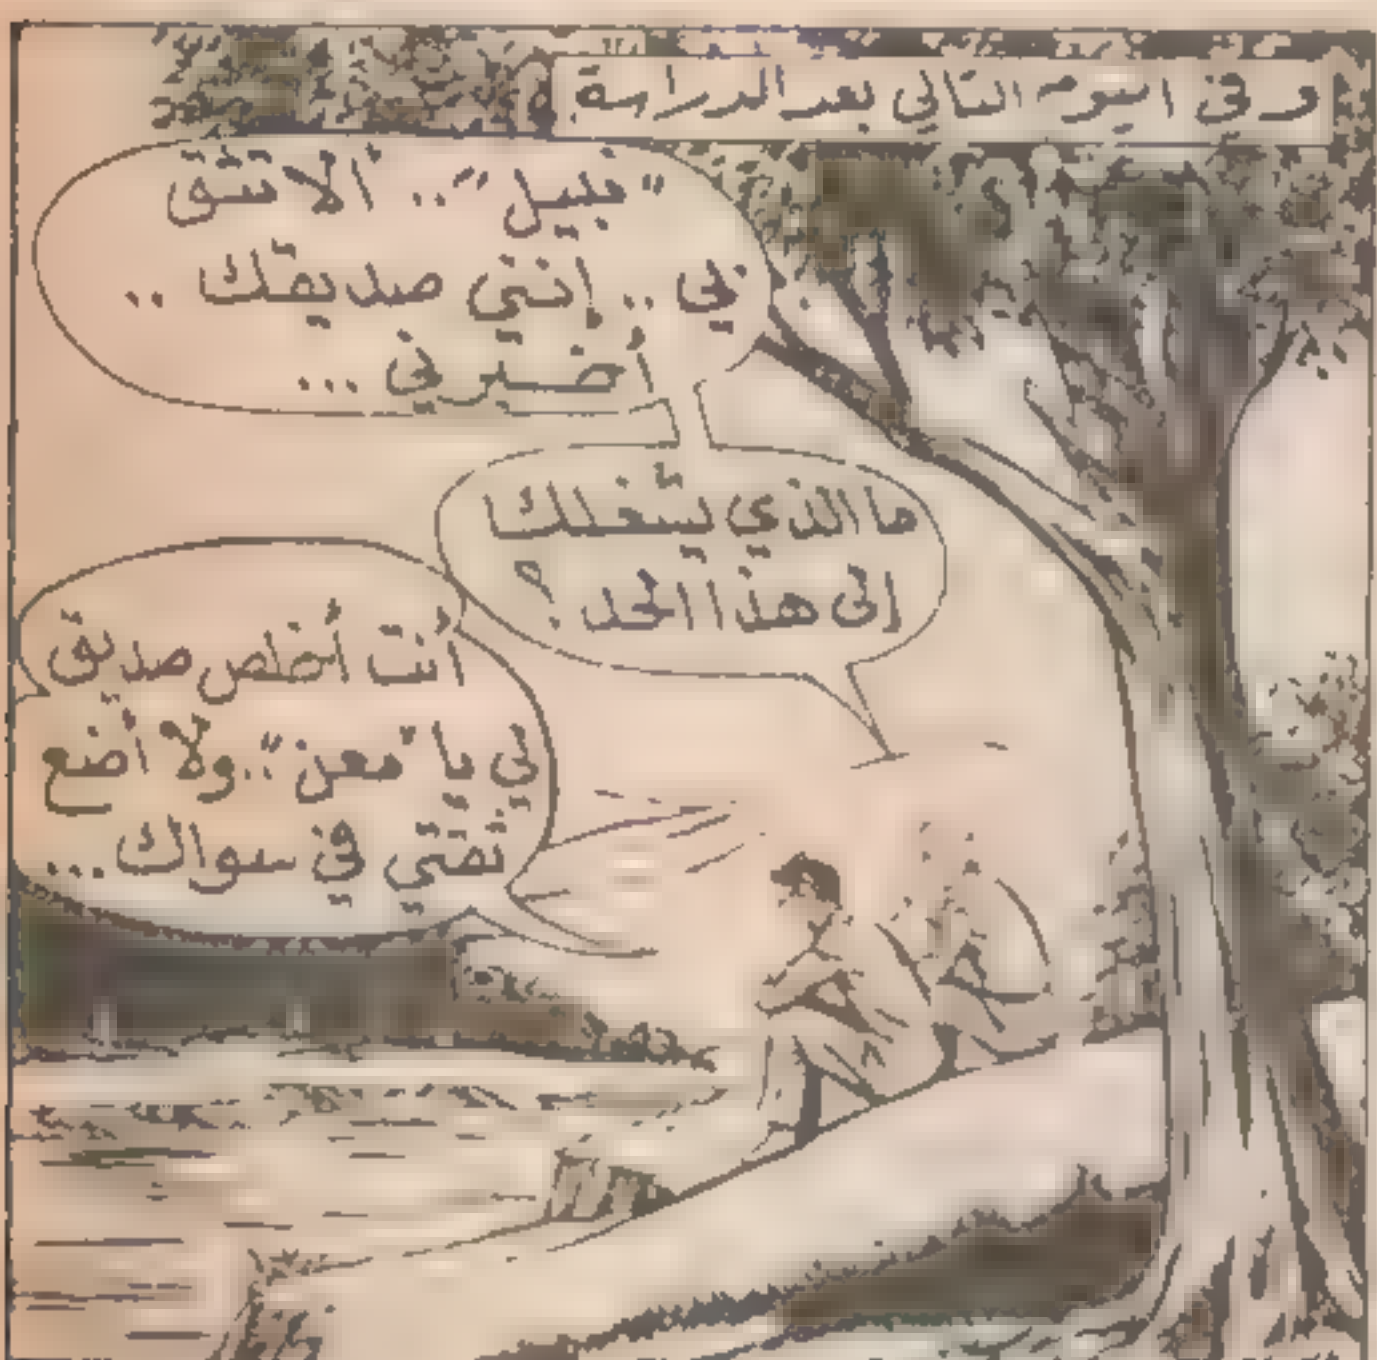 وفي اليوم التالي بعد الدراسة
"نبيل" .. ألا تثق
بي .. إنني صديقك ..
أخبرني ...
ما الذي يشغلك
إلى هذا الحد ؟
أنت أخلص صديق
لي يا "معن" .. ولا أضع
ثقتي في سواك ...